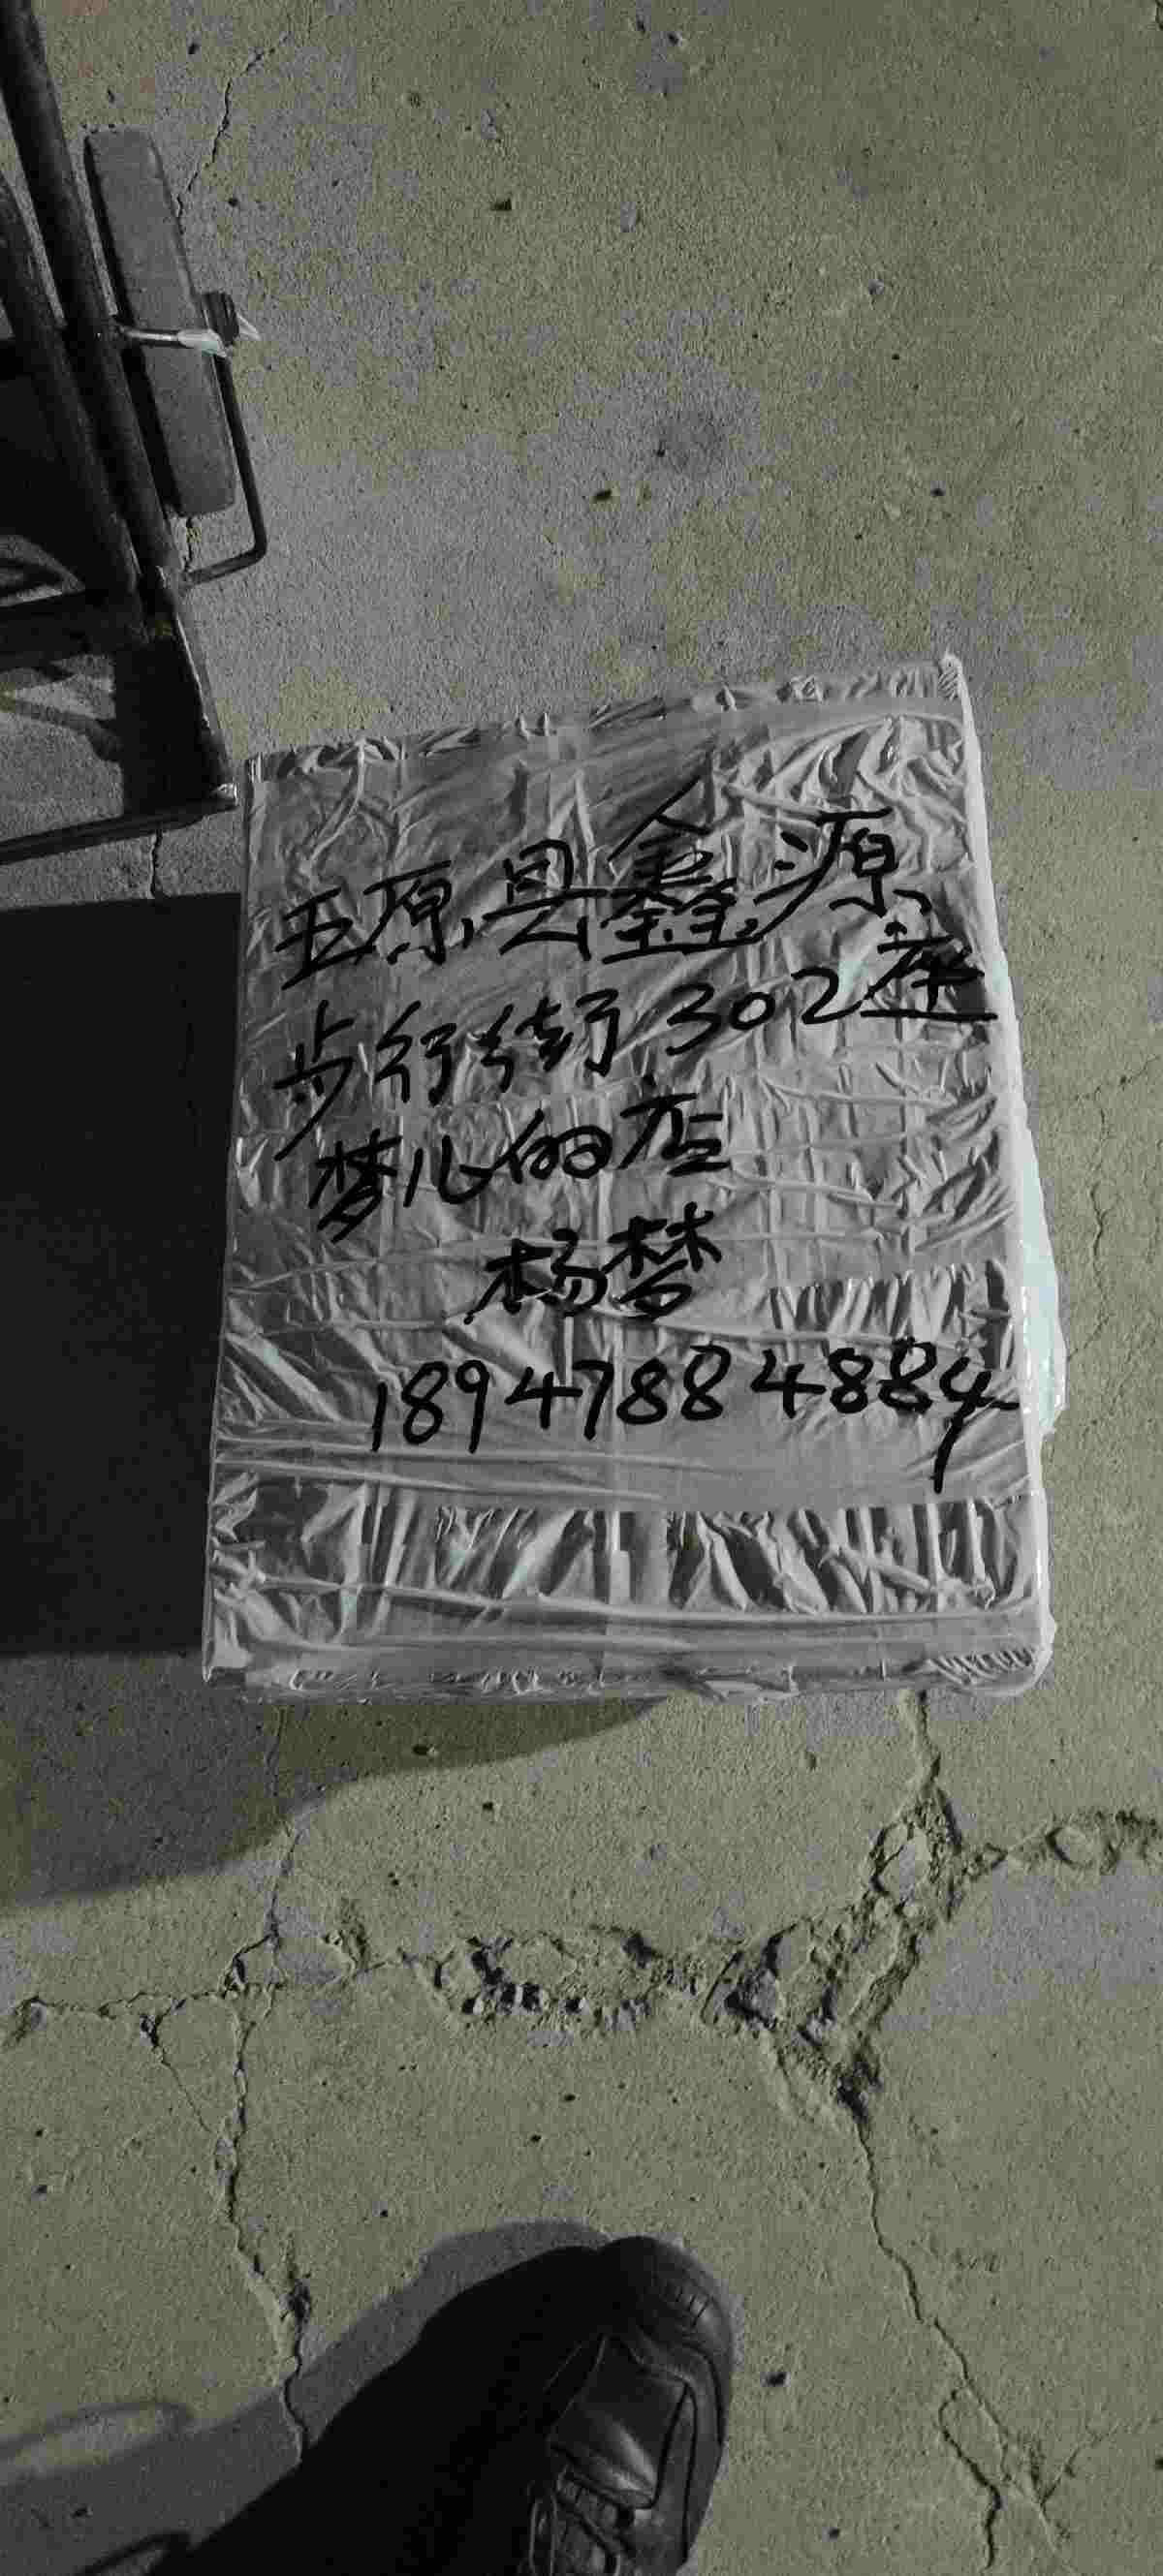 五原县鑫源
步行街302座
梦儿的店
杨梦
18947884884